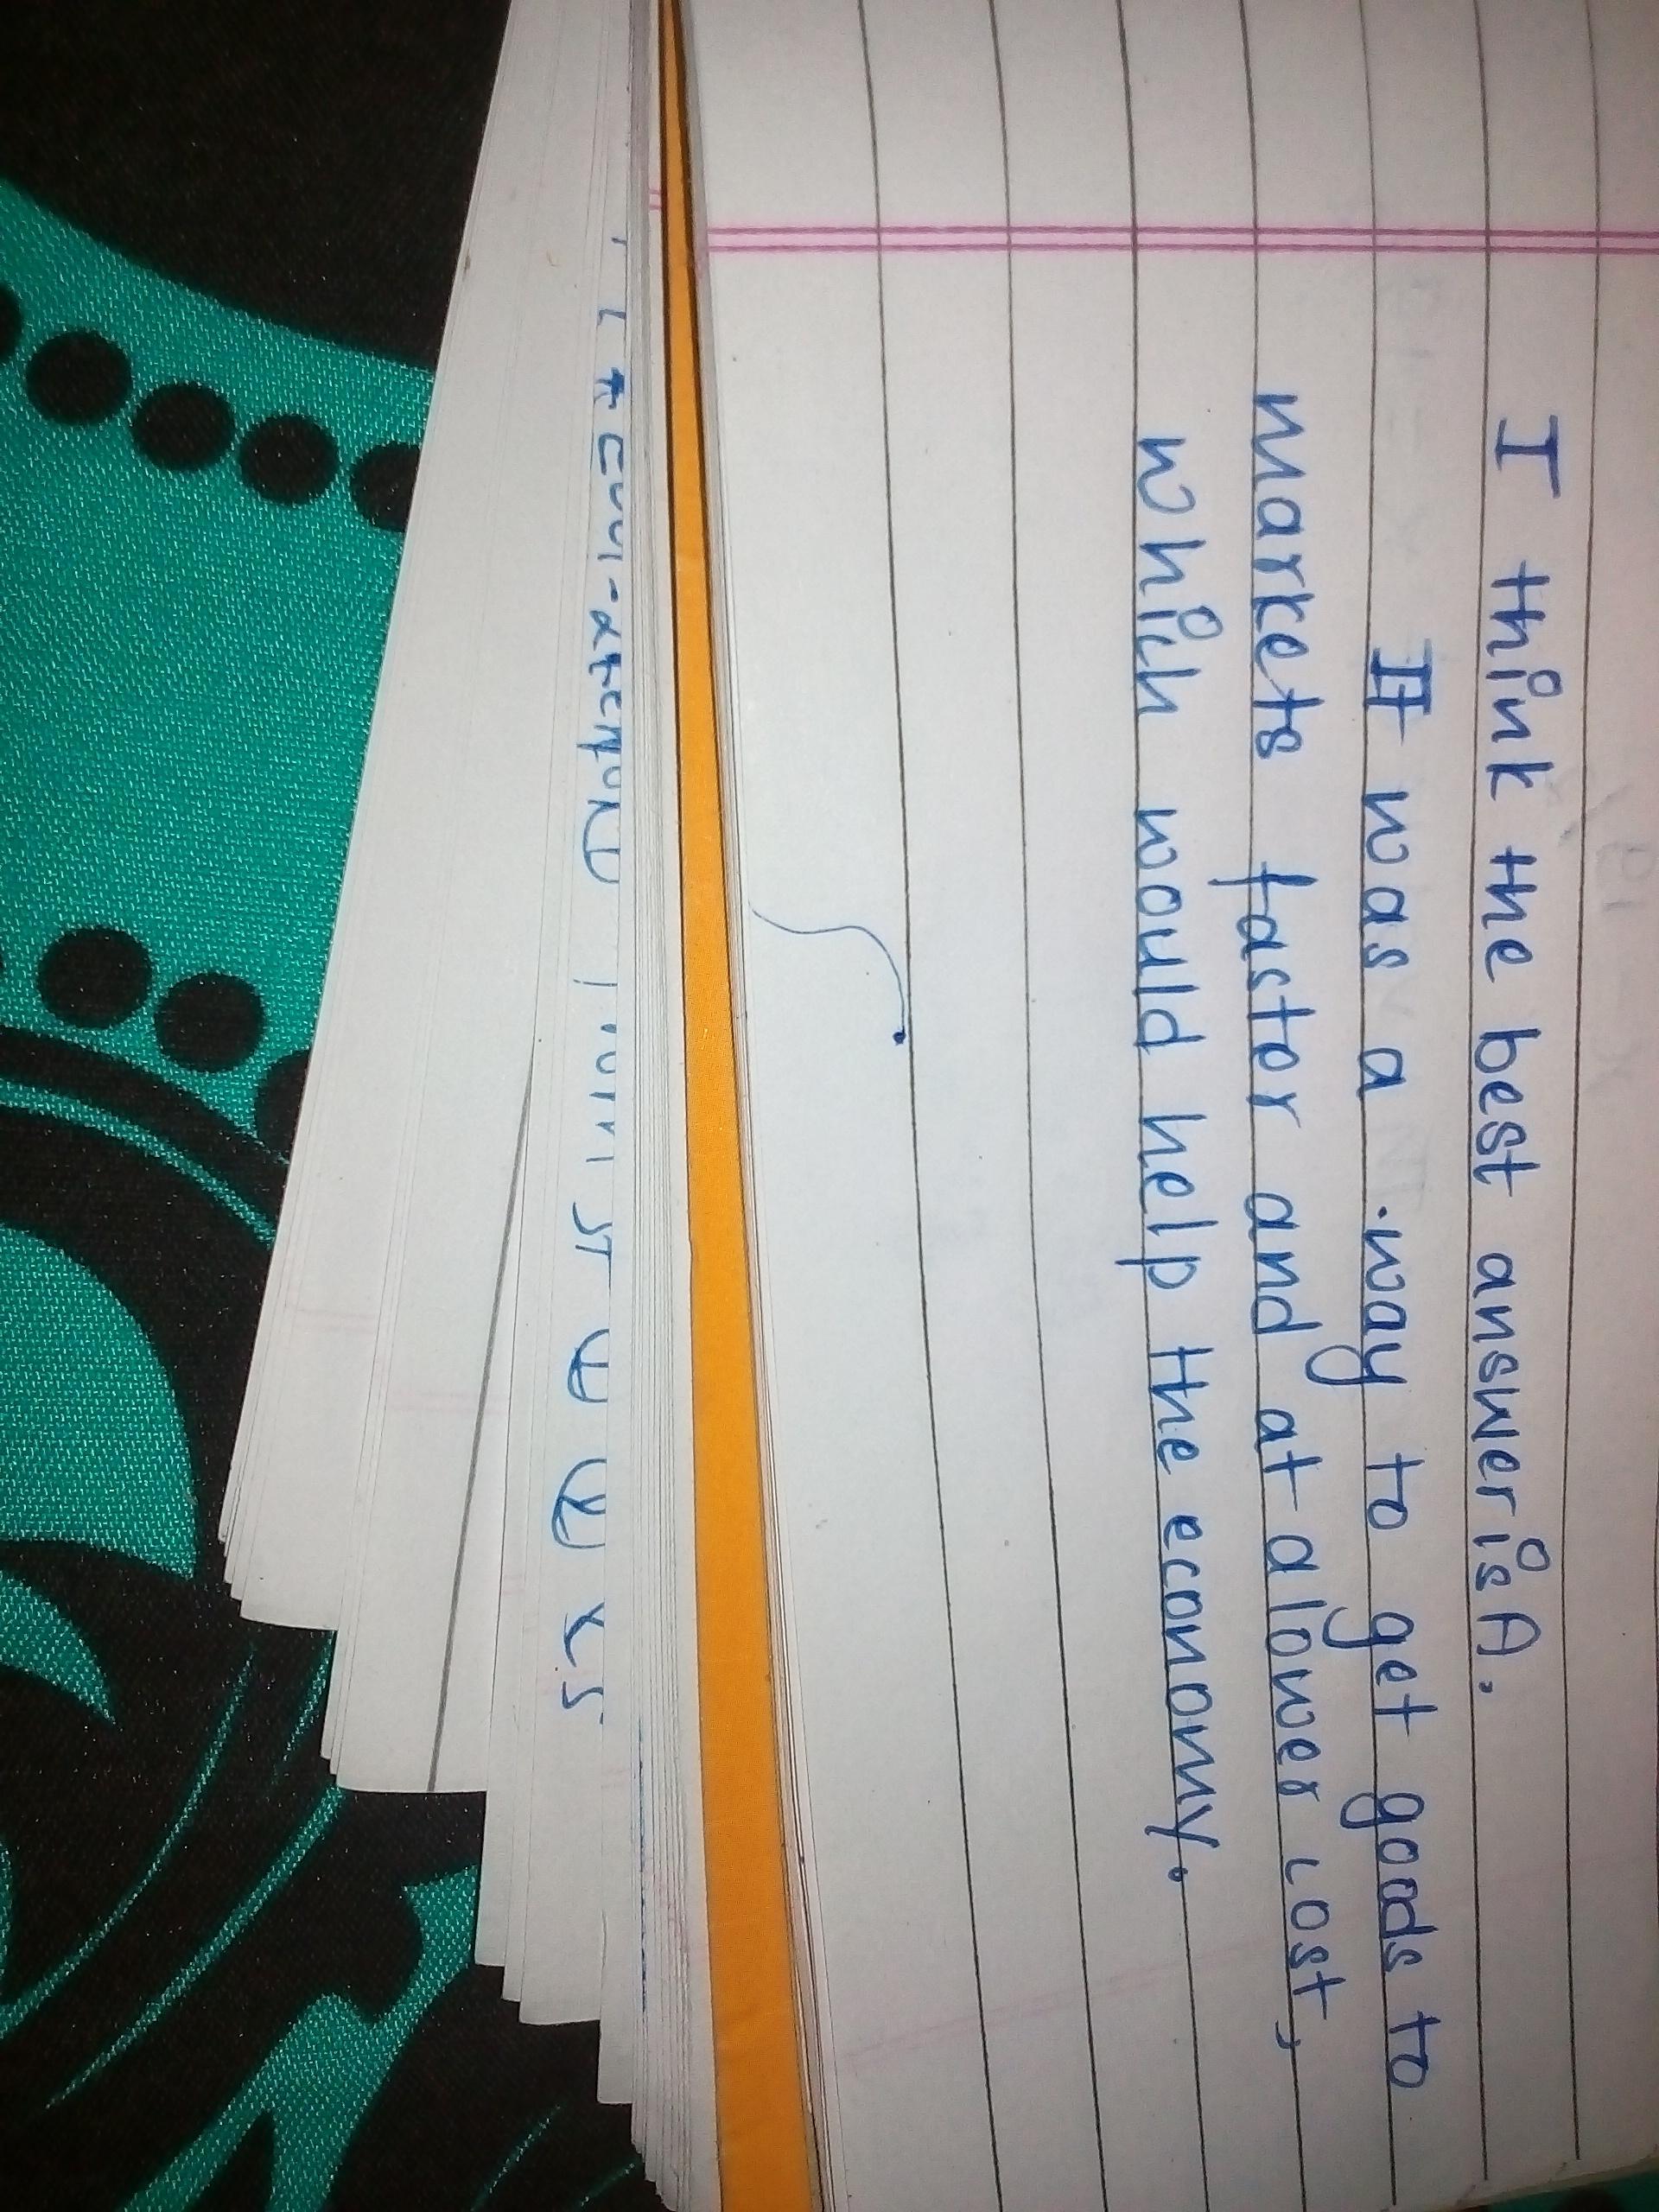 I think the best answer is A.
It was a way to get goods to
markets faster and at a lower cost,
which would help the economy.